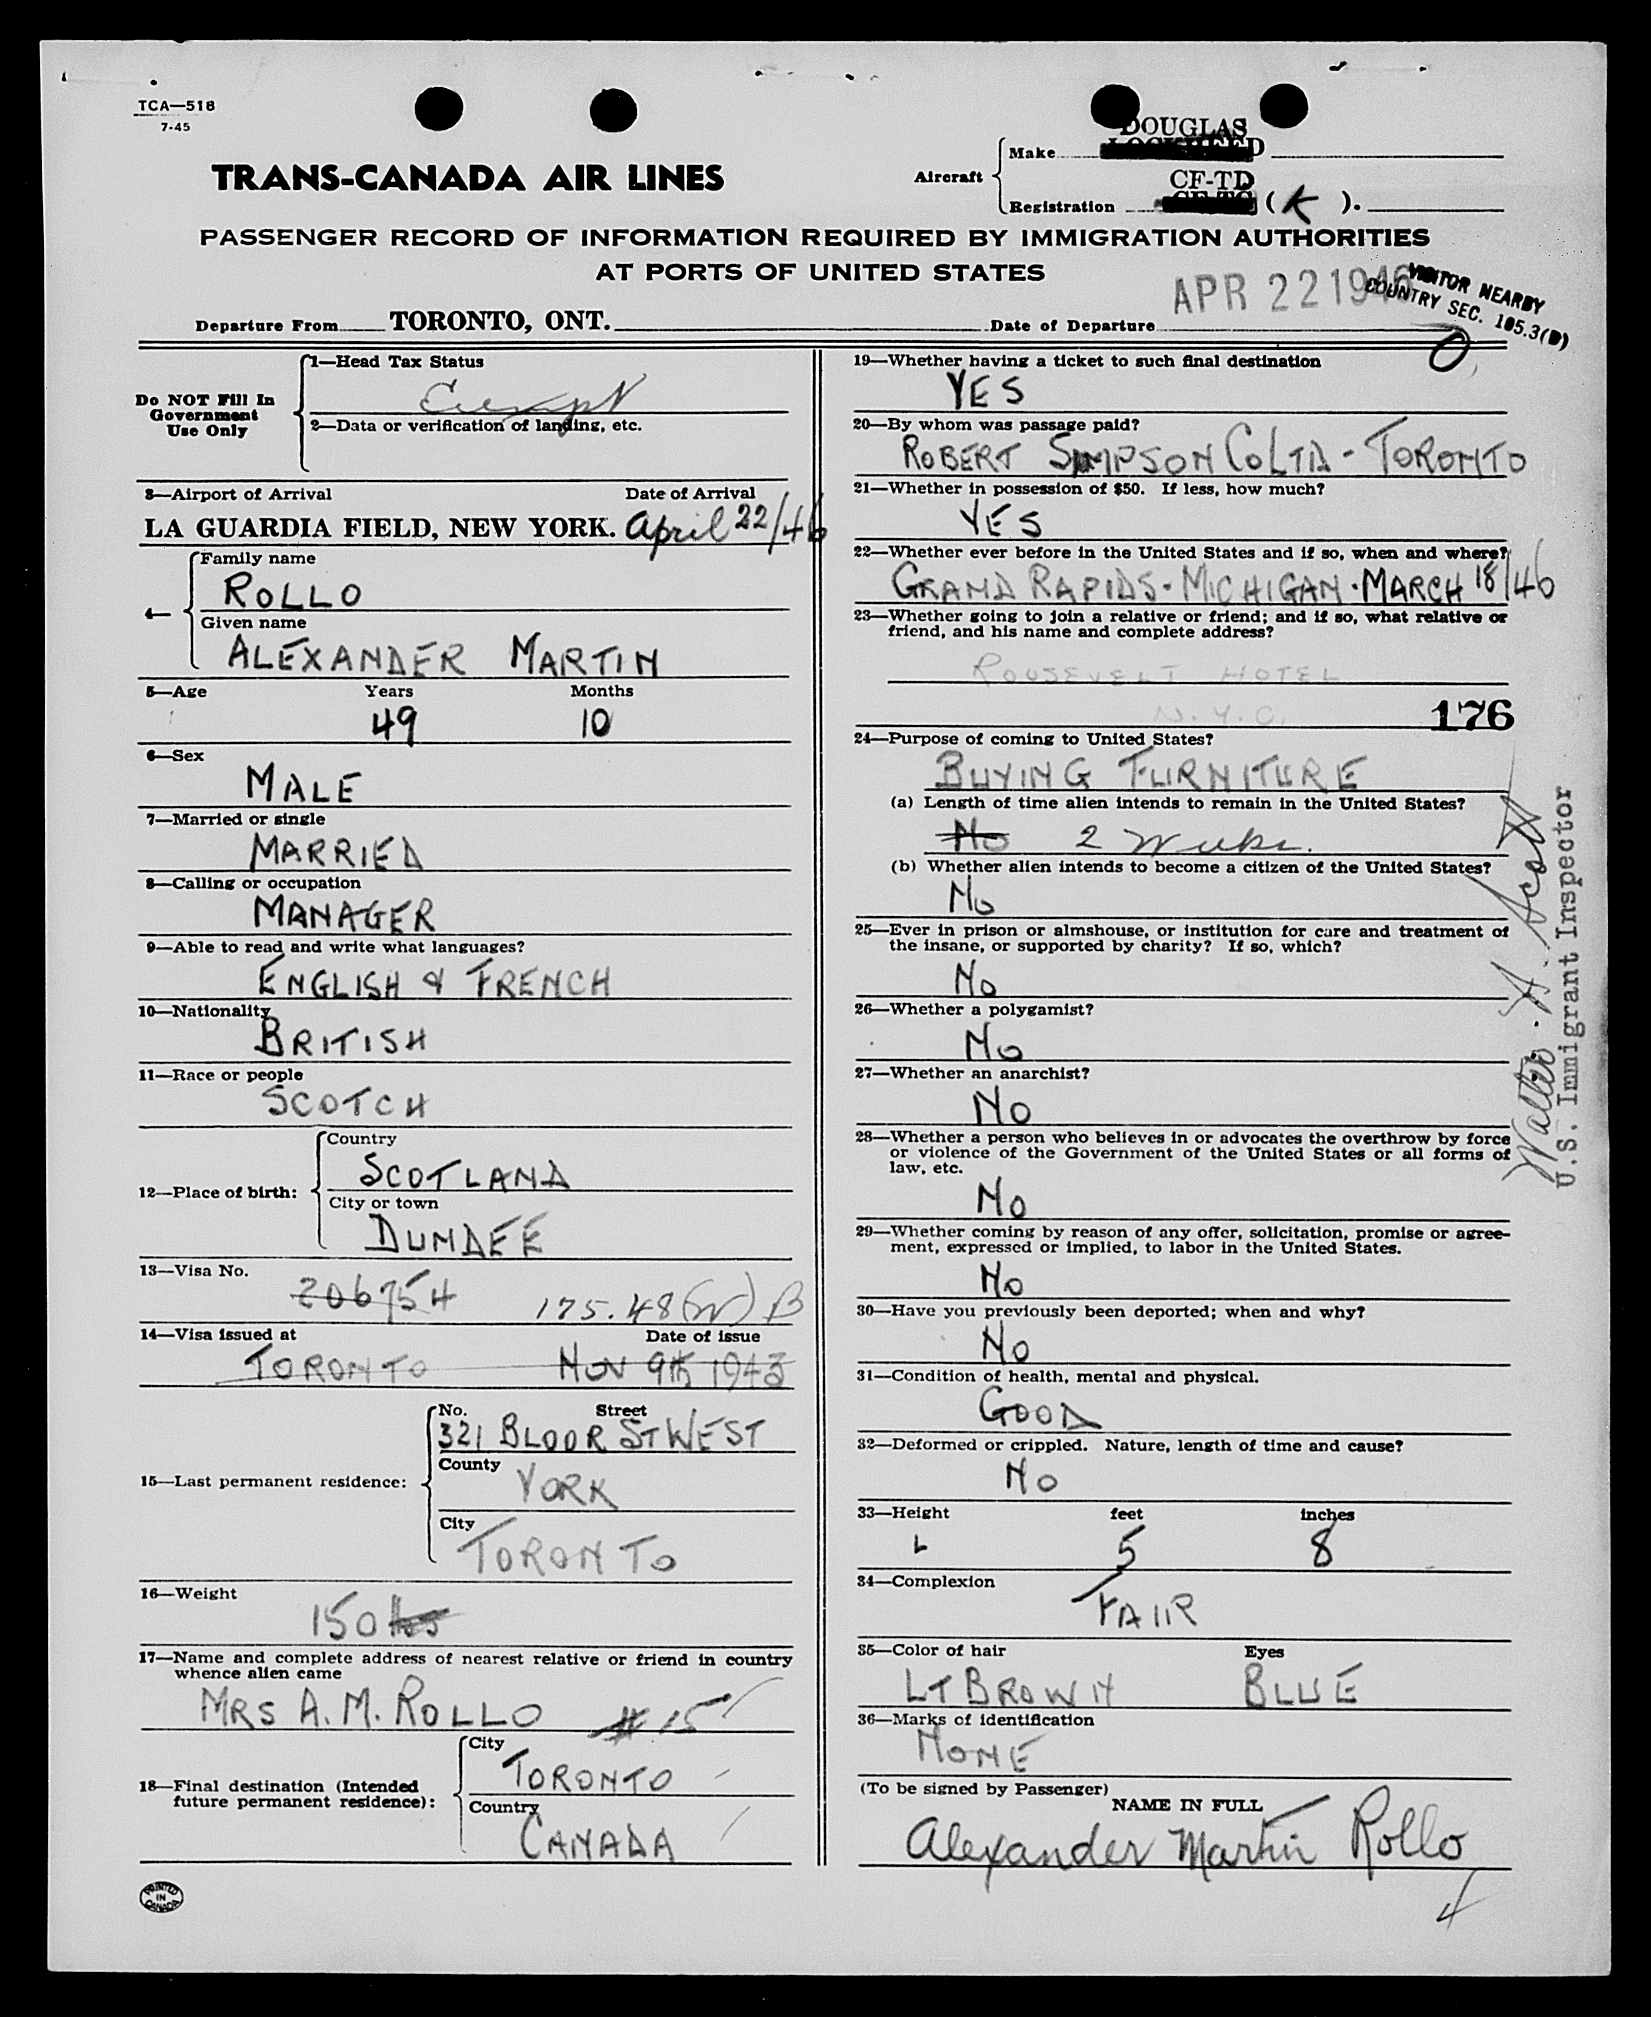 TCA—518
7-45
TRANS-CANADA AIR LINES
Aircraft
Make
DOUGLAS
LOCKHEED
Registration
CF-TD
CF-TC
( K ).
PASSENGER RECORD OF INFORMATION REQUIRED BY IMMIGRATION AUTHORITIES
AT PORTS OF UNITED STATES
APR 22 1946
VISITOR NEARBY
COUNTRY SEC. 105.3(D)
Departure From TORONTO, ONT. Date of Departure
Do NOT Fill In
Government
Use Only
1—Head Tax Status
Exempt
2—Data or verification of landing, etc.
3—Airport of Arrival Date of Arrival
LA GUARDIA FIELD, NEW YORK. April 22/46
4—
Family name
ROLLO
Given name
ALEXANDER MARTIN
5—Age Years Months
49 10
6—Sex
MALE
7—Married or single
MARRIED
8—Calling or occupation
MANAGER
9—Able to read and write what languages?
ENGLISH & FRENCH
10—Nationality
BRITISH
11—Race or people
SCOTCH
12—Place of birth:
Country
SCOTLAND
City or town
DUNDEE
13—Visa No.
206754 175.48(W) B
14—Visa issued at Date of issue
TORONTO NOV 9th 1943
15—Last permanent residence:
No. Street
321 BLOOR ST WEST
County
YORK
City
TORONTO
16—Weight
150 lbs
17—Name and complete address of nearest relative or friend in country
whence alien came
MRS A. M. ROLLO # 15
18—Final destination (Intended
future permanent residence):
City
TORONTO
Country
CANADA
PRINTED
IN
CANADA
19—Whether having a ticket to such final destination
YES
20—By whom was passage paid?
ROBERT SIMPSON CO LTD - TORONTO
21—Whether in possession of $50. If less, how much?
YES
22—Whether ever before in the United States and if so, when and where?
GRAND RAPIDS - MICHIGAN - MARCH 18/46
23—Whether going to join a relative or friend; and if so, what relative or
friend, and his name and complete address?
ROUSEVELT HOTEL
N.Y.C.
176
24—Purpose of coming to United States?
BUYING FURNITURE
(a) Length of time alien intends to remain in the United States?
No 2 Weeks.
(b) Whether alien intends to become a citizen of the United States?
No
25—Ever in prison or almshouse, or institution for care and treatment of
the insane, or supported by charity? If so, which?
No
26—Whether a polygamist?
No
27—Whether an anarchist?
No
28—Whether a person who believes in or advocates the overthrow by force
or violence of the Government of the United States or all forms of
law, etc.
No
29—Whether coming by reason of any offer, solicitation, promise or agree-
ment, expressed or implied, to labor in the United States.
No
30—Have you previously been deported; when and why?
No
31—Condition of health, mental and physical.
GOOD
32—Deformed or crippled. Nature, length of time and cause?
NO
33—Height feet inches
5 8
34—Complexion
FAIR
35—Color of hair Eyes
LT BROWN BLUE
36—Marks of identification
NONE
(To be signed by Passenger)
NAME IN FULL
Alexander Martin Rollo
4
Walter A. Scott
U.S. Immigrant Inspector